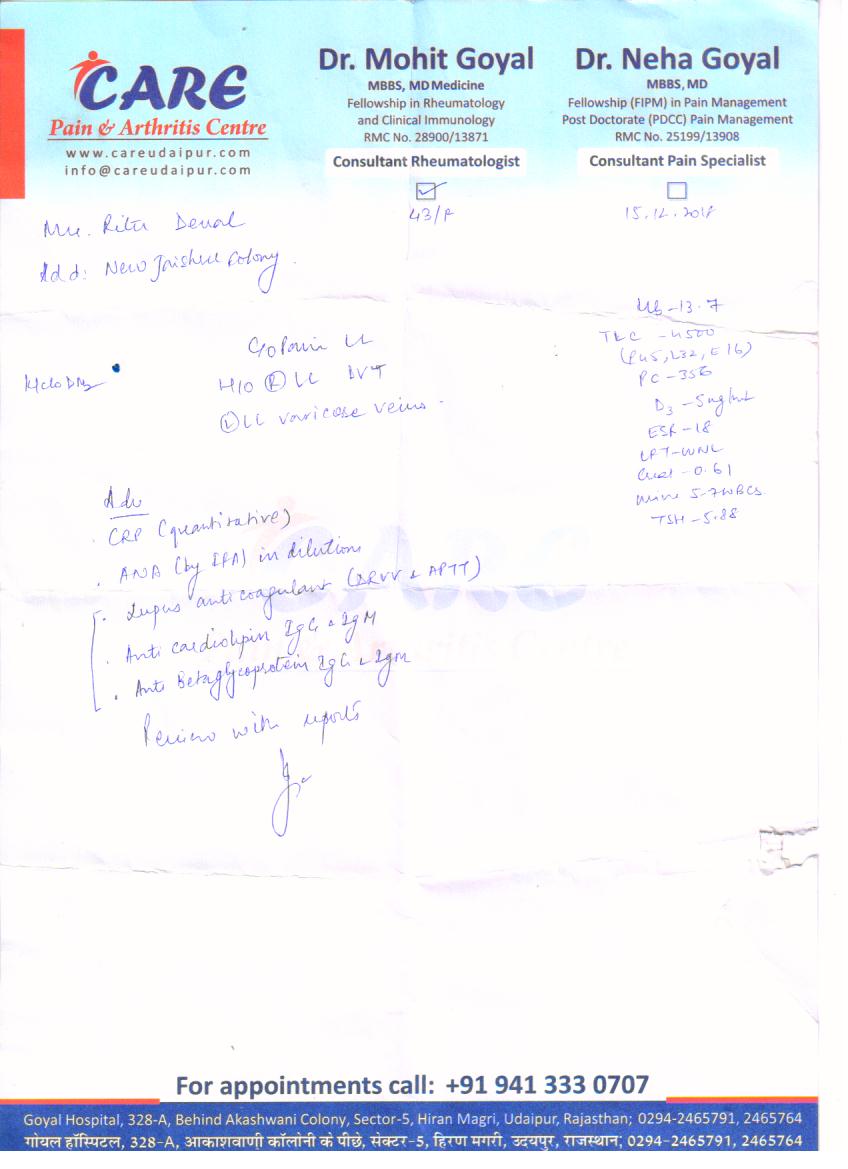 CARE
Pain & Arthritis Centre
www.careudaipur.com
info@careudaipur.com
Dr. Mohit Goyal
MBBS, MD Medicine
Fellowship in Rheumatology
and Clinical Immunology
RMC No. 28900/13871
Consultant Rheumatologist
Dr. Neha Goyal
MBBS, MD
Fellowship (FIPM) in Pain Management
Post Doctorate (PDCC) Pain Management
RMC No. 25199/13908
Consultant Pain Specialist
43/F
15.12.2018
Rita
Add: New Colony
Hb-13.7
TLC -4500
(P45, L32, E16)
PC-356
D3-5ng/ml
ESR-18
LFT-WNL
Creat-0.61
Urine 5-7 WBCs
TSH-5.88
C/o Pain LL
H/O (R) LL DVT
(L) LL varicose veins
K/c/o
Adv
CRP (quantitative)
ANA (by IFA) in dilutions
Lupus anticoagulant (DRVV & APTT)
Anti cardiolipin IgG & IgM
Anti Betaglycoprotein IgG & IgM
Review with reports
For appointments call: +91 941 333 0707
Goyal Hospital, 328-A, Behind Akashwani Colony, Sector-5, Hiran Magri, Udaipur, Rajasthan; 0294-2465791, 2465764
गोयल हॉस्पिटल, 328-A, आकाशवाणी कॉलोनी के पीछे, सेक्टर-5, हिरण मगरी, उदयपुर, राजस्थान; 0294-2465791, 2465764